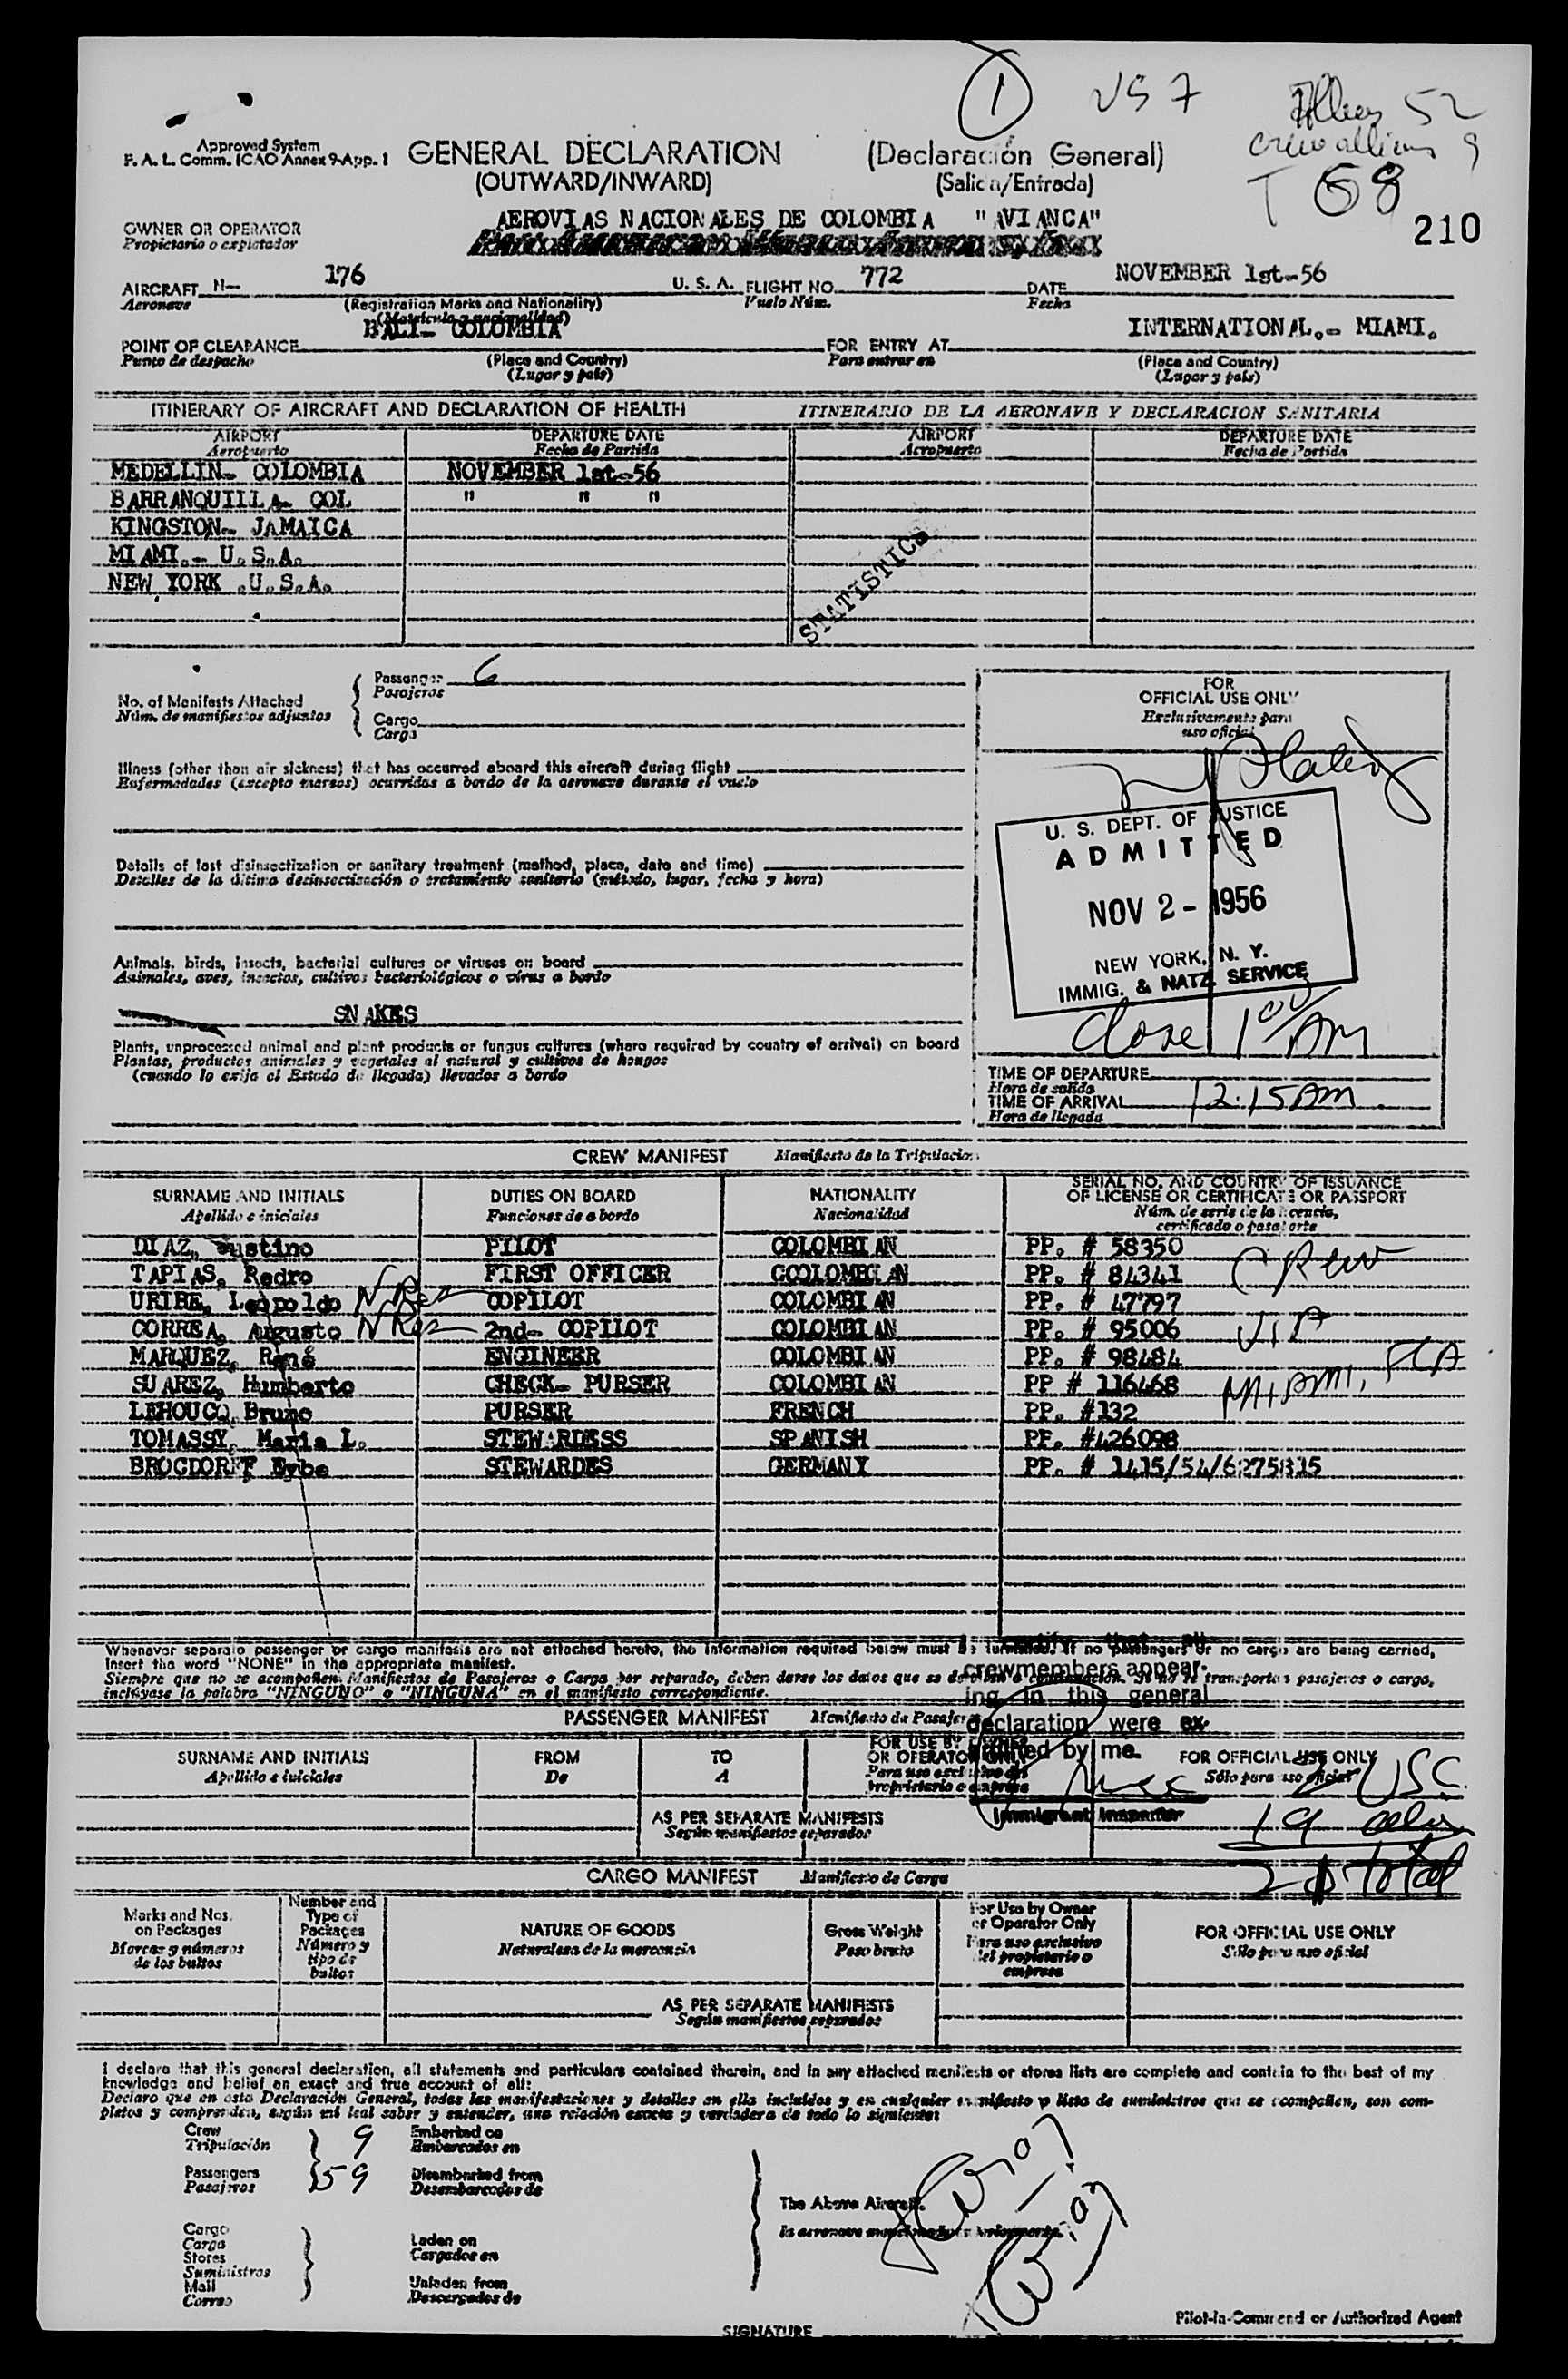 1 US 7 52
Approved System
F. A. L. Comm. ICAO Annex 9-App. 1
GENERAL DECLARATION (Declaración General)
(OUTWARD/INWARD) (Salida/Entrada)
T 68
210
OWNER OR OPERATOR AEROVIAS NACIONALES DE COLOMBIA "AVIANCA"
Propietario o explotador
AIRCRAFT N- 176 U. S. A. FLIGHT NO. 772 DATE NOVEMBER 1st-56
Aeronave (Registration Marks and Nationality) Vuelo Núm. Fecha
(Matricula y nacionalidad)
POINT OF CLEARANCE COLOMBIA FOR ENTRY AT INTERNATIONAL.- MIAMI.
Punto de despacho (Place and Country) Para entrar en (Place and Country)
(Lugar y país) (Lugar y país)
ITINERARY OF AIRCRAFT AND DECLARATION OF HEALTH ITINERARIO DE LA AERONAVE Y DECLARACION SANITARIA
AIRPORT DEPARTURE DATE AIRPORT DEPARTURE DATE
Aeropuerto Fecha de Partida Aeropuerto Fecha de Partida
MEDELLIN- COLOMBIA NOVEMBER 1st-56
BARRANQUILLA- COL " " "
KINGSTON- JAMAICA
MIAMI.- U.S.A.
NEW YORK .U.S.A.
STATISTICS
No. of Manifests Attached Passenger 6
Núm. de manifiestos adjuntos Pasajeros
Cargo
Carga
FOR
OFFICIAL USE ONLY
Exclusivamente para
uso oficial
Illness (other than air sickness) that has occurred aboard this aircraft during flight
Enfermedades (excepto mareos) ocurridas a bordo de la aeronave durante el vuelo
Details of last disinsectization or sanitary treatment (method, place, date and time)
Detalles de la última desinsectisación o tratamiento sanitario (método, lugar, fecha y hora)
U. S. DEPT. OF JUSTICE
ADMITTED
NOV 2 - 1956
NEW YORK, N. Y.
IMMIG. & NATZ. SERVICE
Animals, birds, insects, bacterial cultures or viruses on board
Animales, aves, insectos, cultivos bacteriológicos o virus a bordo
SNAKES
Close 1 00/AM
Plants, unprocessed animal and plant products or fungus cultures (where required by country of arrival) on board
Plantas, productos animales y vegetales al natural y cultivos de hongos
(cuando lo exija el Estado de llegada) llevados a bordo
TIME OF DEPARTURE
Hora de salida
TIME OF ARRIVAL 12:15 AM
Hora de llegada
CREW MANIFEST Manifiesto de la Tripulacion
SURNAME AND INITIALS DUTIES ON BOARD NATIONALITY SERIAL NO. AND COUNTRY OF ISSUANCE
OF LICENSE OR CERTIFICATE OR PASSPORT
Apellido e iniciales Funciones de a bordo Nacionalidad Núm. de serie de la licencia,
certificado o pasaporte
DIAZ, Justino PILOT COLOMBIAN PP. # 58350
TAPIAS, Redro FIRST OFFICER CCOLOMBIAN PP. # 84341 Crew
URIBE, Leopoldo N Res COPILOT COLOMBIAN PP. # 47797
CORREA, Augusto N Res 2nd- COPILOT COLOMBIAN PP. # 95006 VIA
MARQUEZ, René ENGINEER COLOMBIAN PP. # 98484
SUAREZ, Humberto CHECK- PURSER COLOMBIAN PP # 116468 MIAMI, FLA
LEHOUCQ, Bruno PURSER FRENCH PP. #132
TOMASSY, Maria L. STEWARDESS SPANISH PP. #426098
BROCDORFF Eybe STEWARDES GERMANY PP. # 1415/54/6275815
Whenever separate passenger or cargo manifests are not attached hereto, the information required below must be furnished. If no passengers or no cargo are being carried,
insert the word "NONE" in the appropriate manifest.
Siempre que no se acompañen Manifiestos de Pasajeros o Carga por separado, deben darse los datos que se detallan a continuación. Si no se transportan pasajeros o carga,
inclúyase la palabra "NINGUNO" o "NINGUNA" en el manifiesto correspondiente.
I certify that all
crewmembers appear-
ing in this general
declaration were ex-
amined by me.
Immigrant Inspector
PASSENGER MANIFEST Manifiesto de Pasajeros
SURNAME AND INITIALS FROM TO FOR USE BY OWNER
OR OPERATOR ONLY FOR OFFICIAL USE ONLY
Apellido e iniciales De A Para uso exclusivo del
propietario o empresa Sólo para uso oficial
2 USC
AS PER SEPARATE MANIFESTS
Según manifiestos separados
19
total
CARGO MANIFEST Manifiesto de Carga
Marks and Nos.
on Packages
Marcas y números
de los bultos
Number and
Type of
Packages
Número y
tipo de
bultos
NATURE OF GOODS
Naturaleza de la mercancía
Gross Weight
Peso bruto
For Use by Owner
or Operator Only
Para uso exclusivo
del propietario o
empresa
FOR OFFICIAL USE ONLY
Sólo para uso oficial
AS PER SEPARATE MANIFESTS
Según manifiestos separados
I declare that this general declaration, all statements and particulars contained therein, and in any attached manifests or stores lists are complete and contain to the best of my
knowledge and belief an exact and true account of all:
Declaro que en esta Declaración General, todas las manifestaciones y detalles en ella incluídos y en cualquier manifiesto o lista de suministros que se acompañen, son com-
pletos y comprenden, según mi leal saber y entender, una relación exacta y verdadera de todo lo siguiente:
Crew 9 Embarked on
Tripulación Embarcados en
Passengers 59 Disembarked from
Pasajeros Desembarcados de
The Above Aircraft.
la aeronave mencionada anteriormente.
Cargo
Carga
Stores
Suministros
Mail
Correo
Laden on
Cargados en
Unladen from
Descargados de
SIGNATURE
Pilot-in-Command or Authorized Agent